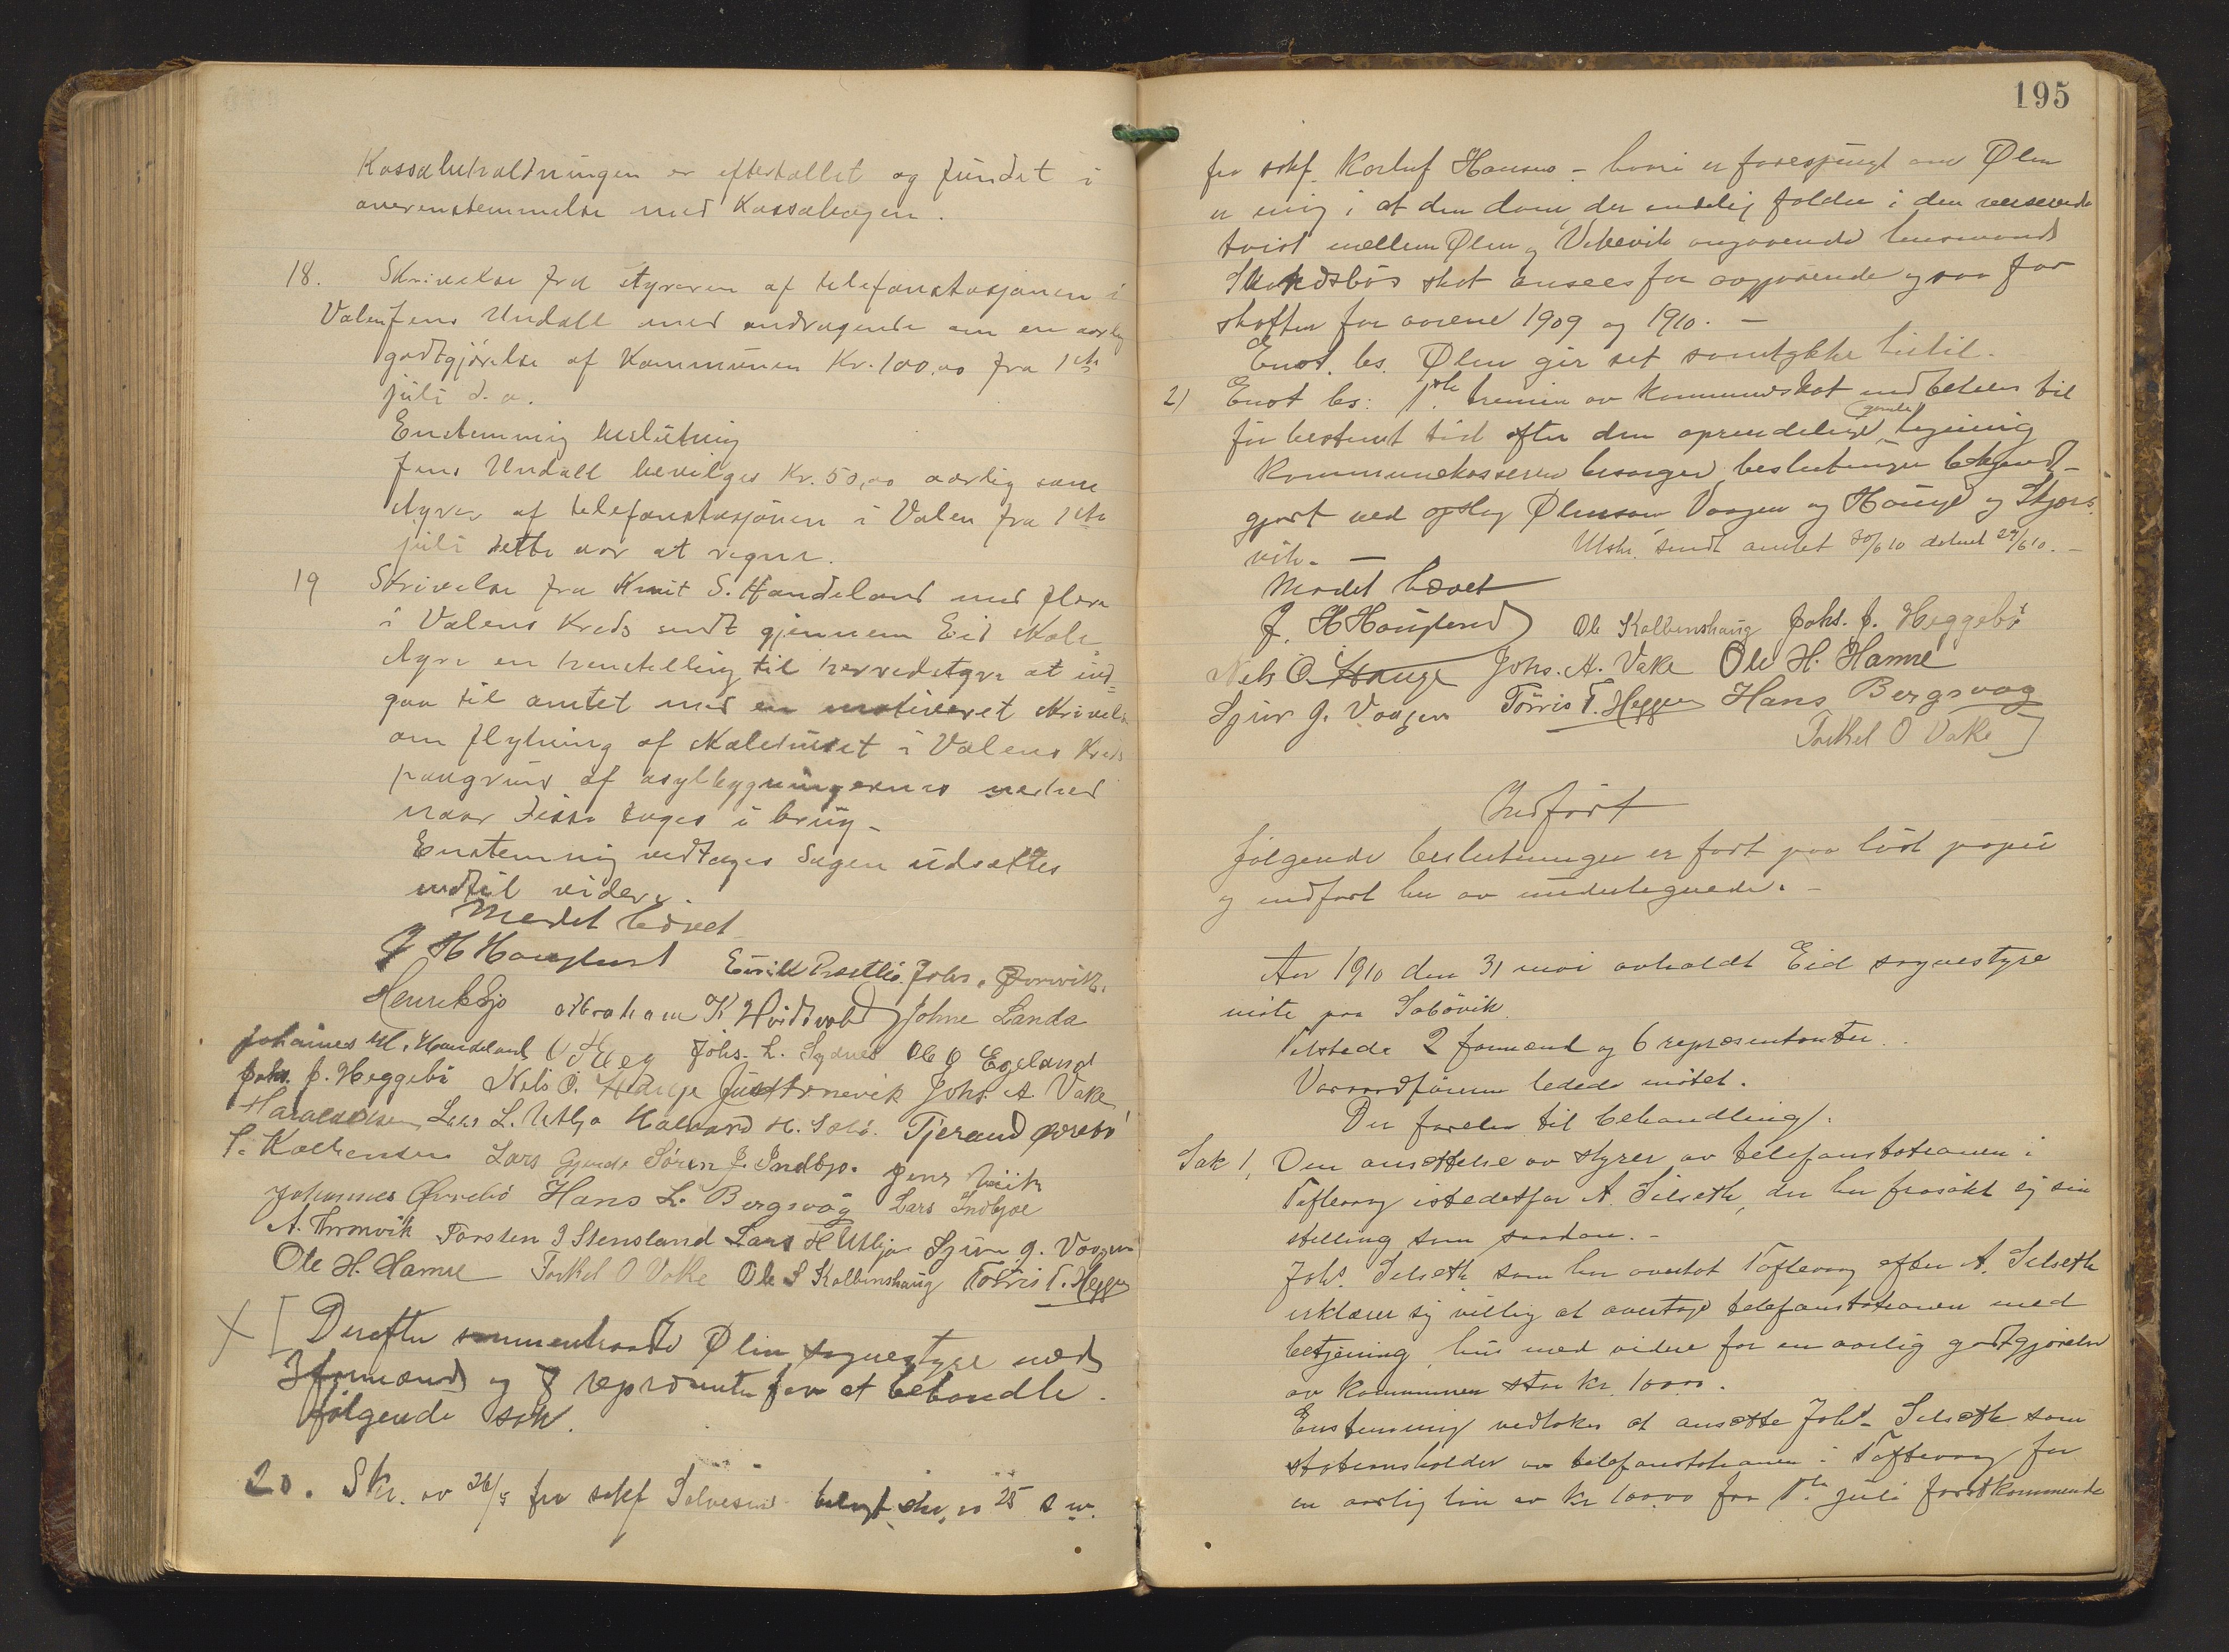 Kassabeholdningen er eftertallet og fundet i
overenstemmelse med Kassabogen.
18. Skrivelse fra styreren af telefonstasjonen i
Valen Jens Undall med andragende om en aarlig
godtgjörelse af Kommunen Kr. 100,00 fra 1ste
juli d. a.
Enstemmig beslutning
Jens Undall bevilges Kr. 50,00 aarlig som
styrer af telefonstasjonen i Valen fra 1ste
juli dette aar at regne.
19 Skrivelse fra Knut S. Handeland med flere
i Valens Kreds sendt gjennem Eid skole
styre en henstelling til herredstyre at ind=
gaa til amtet med en motiveret skrivelse
om flytning af skolehuset i Valens Kreds
paagrund af asylbygningernes nærhed
naar disse tages i brug.
Enstemmig vedtages Sagen udsættes
indtil videre.
Mødet hævet
J H Houglund Eirik Prestbö Johs. Örnvik.
Henrik Sjo Abraham K Hvidsvold John Landa
Johannes M. Handeland O Hoeg Johs. L. Sydnes Ole O Egeland
Johs. J. Heggebö Nels O. Hauge Johs A Vake
Lars L. Utbjo Halvard H. Sæbö. Tjerand Övrebö
S. Kolbensen Lars Gjerde Sören J. Indbjo. Jens Vaik
Johannes Övrebö Hans L. Bergsvåg Lars Indbjoe
A. Tronvik Torsten J Stensland Lars H Utbjoe Sjur G. Vaagen
Ole H. Hamre Torkel O Vake Ole S Kolbenshaug Törris T. Heggen
X [ Derefter sammentraadte Ølen sognestyre med
3 formænd og 7 repræsenter for at behandle
følgende sak.
20. Skr. av 26/5 fra sakf Selvesens bilagt skr. av 25 s m.
195
fra sakf. Korluf Hansen – hvori er forespurgt om Ølen
er enig i at den dom der endelig falder i den verserende
tvist mellem Ølen og Vikevik angaaende lensmand
skat ansees for avgjørende ogsaa for
skatten for aarene 1909 og 1910. –
Enst. bs. Ølen gir sit samtykke hertil.
21 Enst bs: 1ste termin av kommuneskat indbetales til
før bestemt tid efter den oprindelige (gamle) ligning
Kommunekassereren besørger beslutningen bekjendt-
gjort ved opslag Ølensvaag Vaagen og Hauge og Stjors-
vik. – Utskr. sendt amtet 30/6 10 datert 29/6 10. –
Mødet hævet
J. H Houglund Ole Kolbenshaug Johs. J. Heggebö
Nels O. Hauge Johs. A. Vake Ole H. Hamre
Sjur G. Vaagen Törris T. Heggen Hans Bergsvaag
Torkel O Vake ]
Indført
følgende beslutninger er ført paa löst papir
og indført her av undertegnede. –
Aar 1910 den 31 mai avholdt Eid sognestyre
möte paa Sæbövik.
Tilstede 2 formænd og 6 repræsentanter.
Varaordføreren ledede mötet.
Der forelaa til behandling:
Sak 1, Om ansettelse av styrer av telefonstationen i
Toftevaag istedetfor A. Selseth, der har frasakt sig sin
stilling som saadan. –
Johs. Selseth som har overtat Toftevaag efter A. Selseth
erklærer sig villig at overtage telefonstationen med
betjening, hus med videre for en aarlig godtgjörelse
av kommunen stor kr. 100.00.
Enstemmig vedtokes at ansette Johs. Selseth som
stationsholder av telefonstationen i Toftevaag for
en aarlig lön av kr 100.00 fra 1ste juli førstkommende